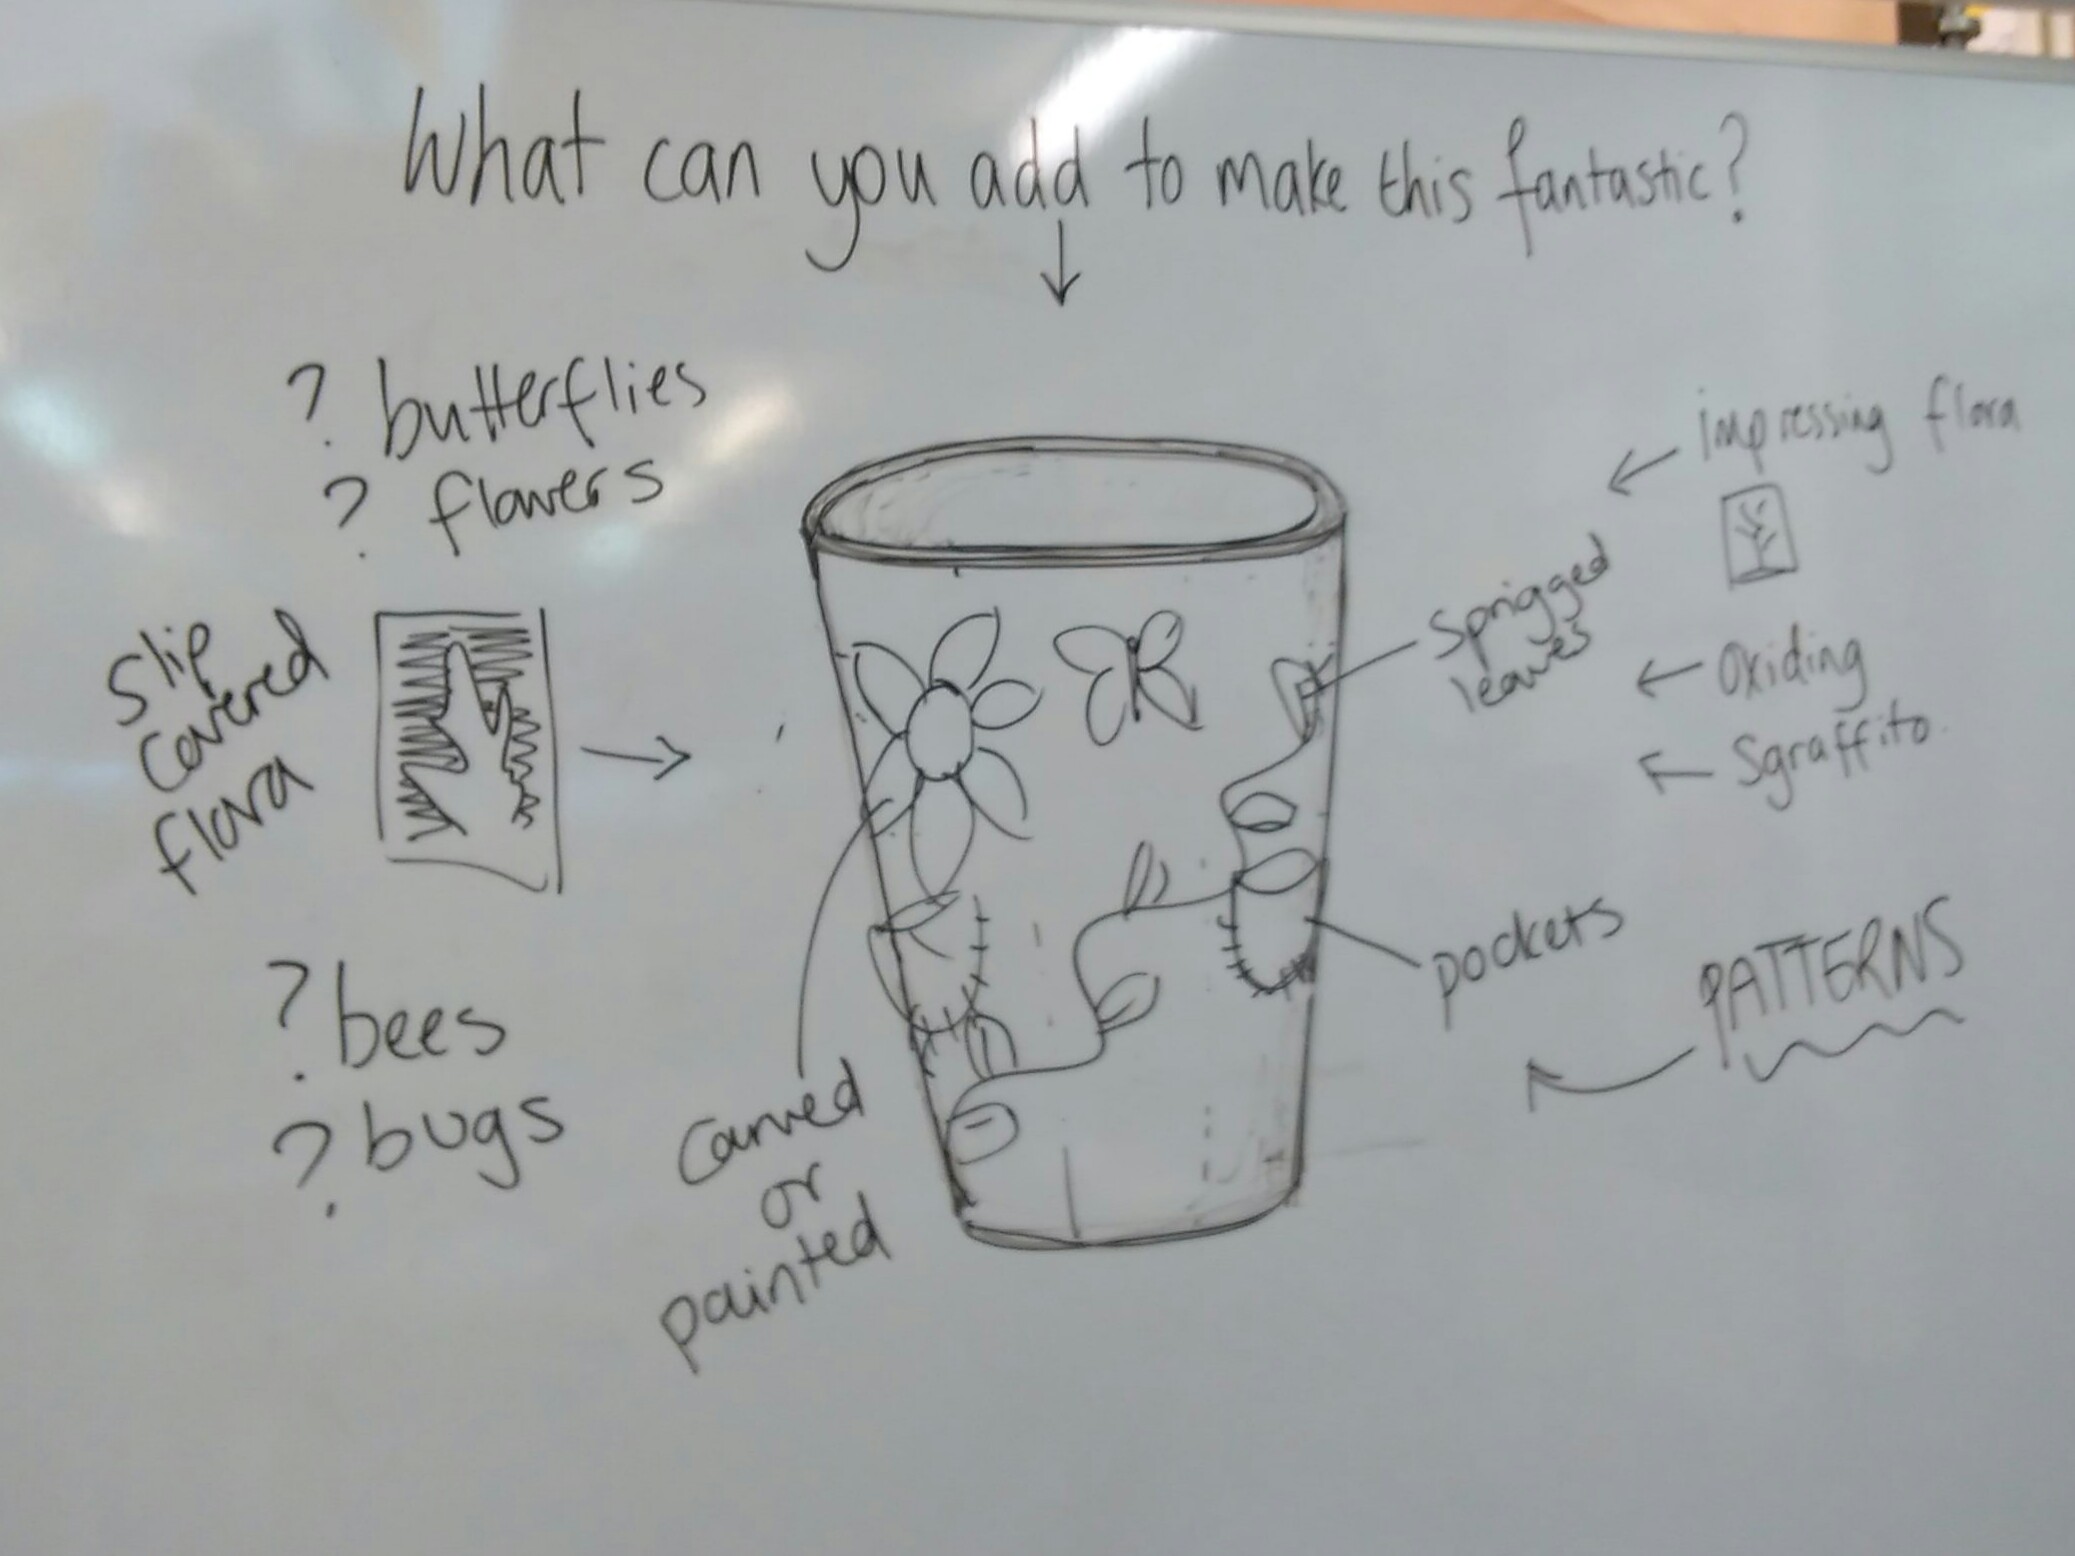 What can you add to make this fantastic?
? butterflies
? flowers
Slip
Covered
flora
? bees
? bugs
Carved
or
painted
impressing flora
Sprigged
leaves
Oxiding
Sgraffito.
pockets
PATTERNS